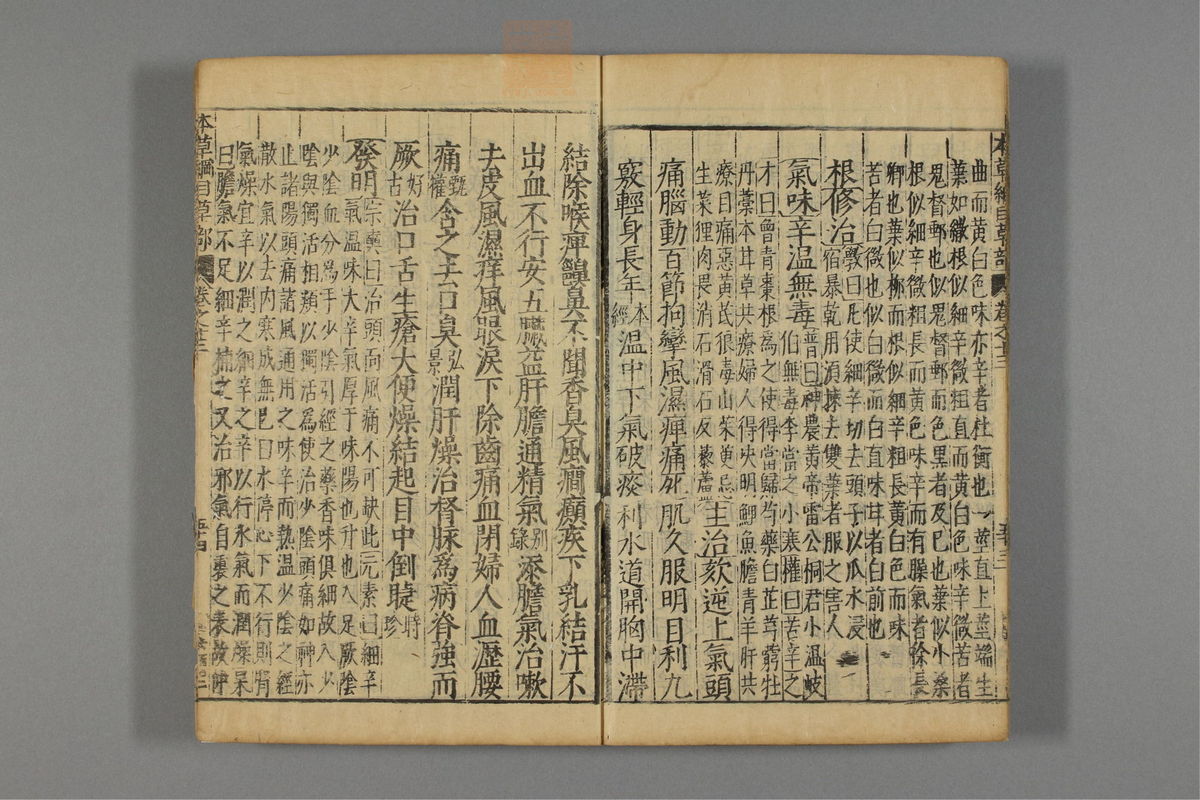 本草綱目草部 卷之十三 五十三
曲而黃白色味亦辛者杜衡也一莖直上莖端生
葉如繖根似細辛微粗直而黃白色味辛微苦者
鬼督郵也似鬼督郵而色黑者及已也葉似小桑
根似細辛微粗長而黃色味辛而有臊氣者徐長
卿也葉似柳而根似細辛粗長黃白色而味
苦者白微也似白微而白直味甘者白前也
根修治斆曰凡使細辛切去頭子以瓜水浸
宿暴乾用須揀去雙葉者服之害人
氣味辛溫無毒普曰神農黃帝雷公桐君小溫岐
伯無毒李當之小寒權曰苦辛之
才曰曾青棗根為之使得當歸芍藥白芷芎藭牡
丹藁本甘草共療婦人得決明鯉魚膽青羊肝共
療目痛惡黃芪狼毒山茱萸忌
生菜狸肉畏消石滑石反藜蘆主治欬逆上氣頭
痛腦動百節拘攣風濕痺痛死肌久服明目利九
竅輕身長年本經溫中下氣破痰利水道開胸中滯
結除喉痺齆鼻不聞香臭風癎癲疾下乳結汗不
出血不行安五臟益肝膽通精氣別錄添膽氣治嗽
去皮風濕痒風眼淚下除齒痛血閉婦人血瀝腰
痛甄權含之去口臭弘景潤肝燥治督脉為病脊強而
厥好古治口舌生瘡大便燥結起目中倒睫時珍
發明宗奭曰治頭面風痛不可缺此元素曰細辛
氣溫味大辛氣厚于味陽也升也入足厥陰
少陰血分為手少陰引經之藥香味俱細故入少
陰與獨活相類以獨活為使治少陰頭痛如神亦
止諸陽頭痛諸風通用之味辛而熱溫少陰之經
散水氣以去內寒成無已曰水停心下不行則腎
氣燥宜辛以潤之細辛之辛以行水氣而潤燥杲
曰膽氣不足細辛補之又治邪氣自裏之表故仲
本草綱目草部 卷之十三 五十四